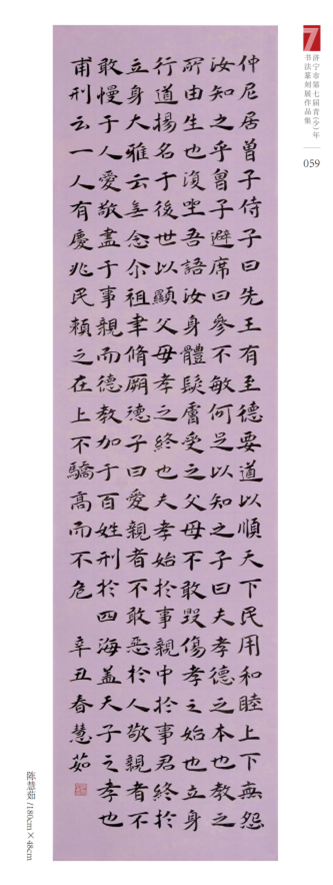 7
济宁市第七届青(少)年
书法篆刻展作品集
059
仲尼居曾子侍子曰先王有至德要道以順天下民用和睦上下無怨
汝知之乎曾子避席曰參不敏何足以知之子曰夫孝德之本也教之
所由生也復坐吾語汝身體髮膚受之父母不敢毀傷孝之始也立身
行道揚名于後世以顯父母孝之終也夫孝始於事親中於事君終於
立身大雅云無念尒祖聿脩厥德子曰愛親者不敢惡於人敬親者不
敢慢于人愛敬盡于事親而德教加于百姓刑於四海蓋天子之孝也
甫刑云一人有慶兆民賴之在上不驕高而不危 辛丑春慧茹
陈慧茹 /180cm×48cm